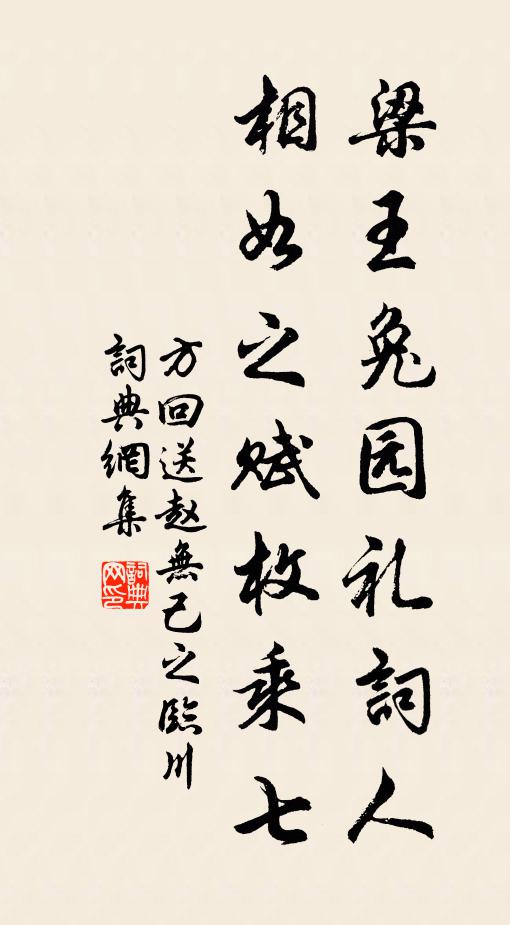 梁王兔园礼詞人
相如之赋枚乘七
方回送赵無己之臨川
詞典網集
詞典網印